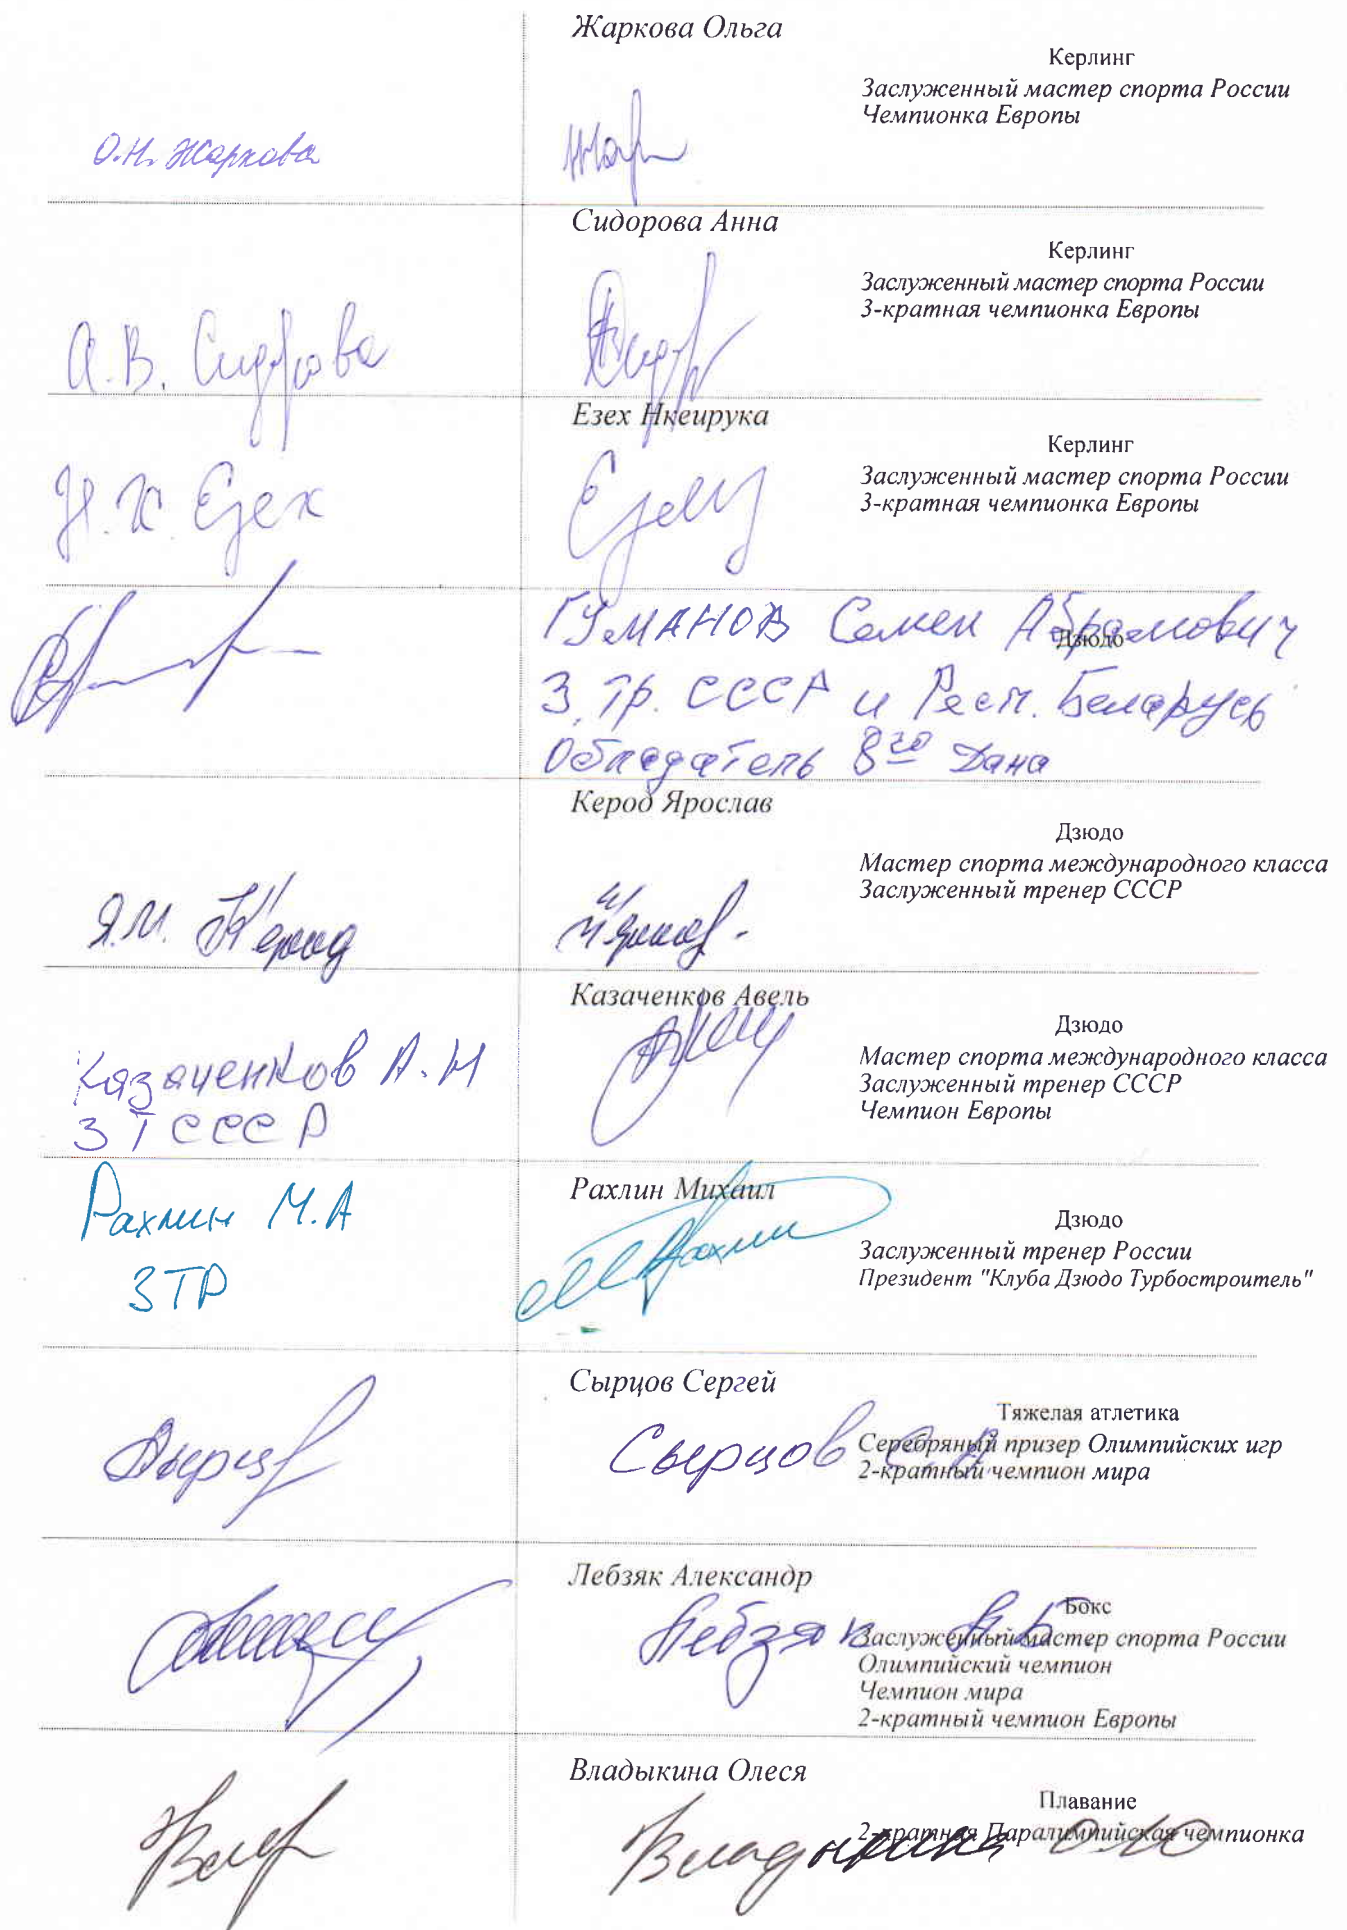 Жаркова Ольга
Керлинг
Заслуженный мастер спорта России
Чемпионка Европы
О.Н. Жаркова
Сидорова Анна
Керлинг
Заслуженный мастер спорта России
3-кратная чемпионка Европы
А.В. Сидорова
Езех Нкеирука
Керлинг
Заслуженный мастер спорта России
3-кратная чемпионка Европы
Н.К. Езех
Дзюдо
ГУМАНОВ Семен Абрамович
З.тр. СССР и Респ. Беларусь
Обладатель 8го Дана
Керод Ярослав
Дзюдо
Мастер спорта международного класса
Заслуженный тренер СССР
Я.М. Керод
Казаченков Авель
Дзюдо
Мастер спорта международного класса
Заслуженный тренер СССР
Чемпион Европы
Казаченков А.Н
ЗТ СССР
Рахлин Михаил
Дзюдо
Заслуженный тренер России
Президент "Клуба Дзюдо Турбостроитель"
Рахлин М.А
ЗТР
Сырцов Сергей
Тяжелая атлетика
Серебряный призер Олимпийских игр
2-кратный чемпион мира
Сырцов С.А
Лебзяк Александр
Бокс
Заслуженный мастер спорта России
Олимпийский чемпион
Чемпион мира
2-кратный чемпион Европы
Лебзяк А.Б
Владыкина Олеся
Плавание
2-кратная Паралимпийская чемпионка
Владыкина О.Ю